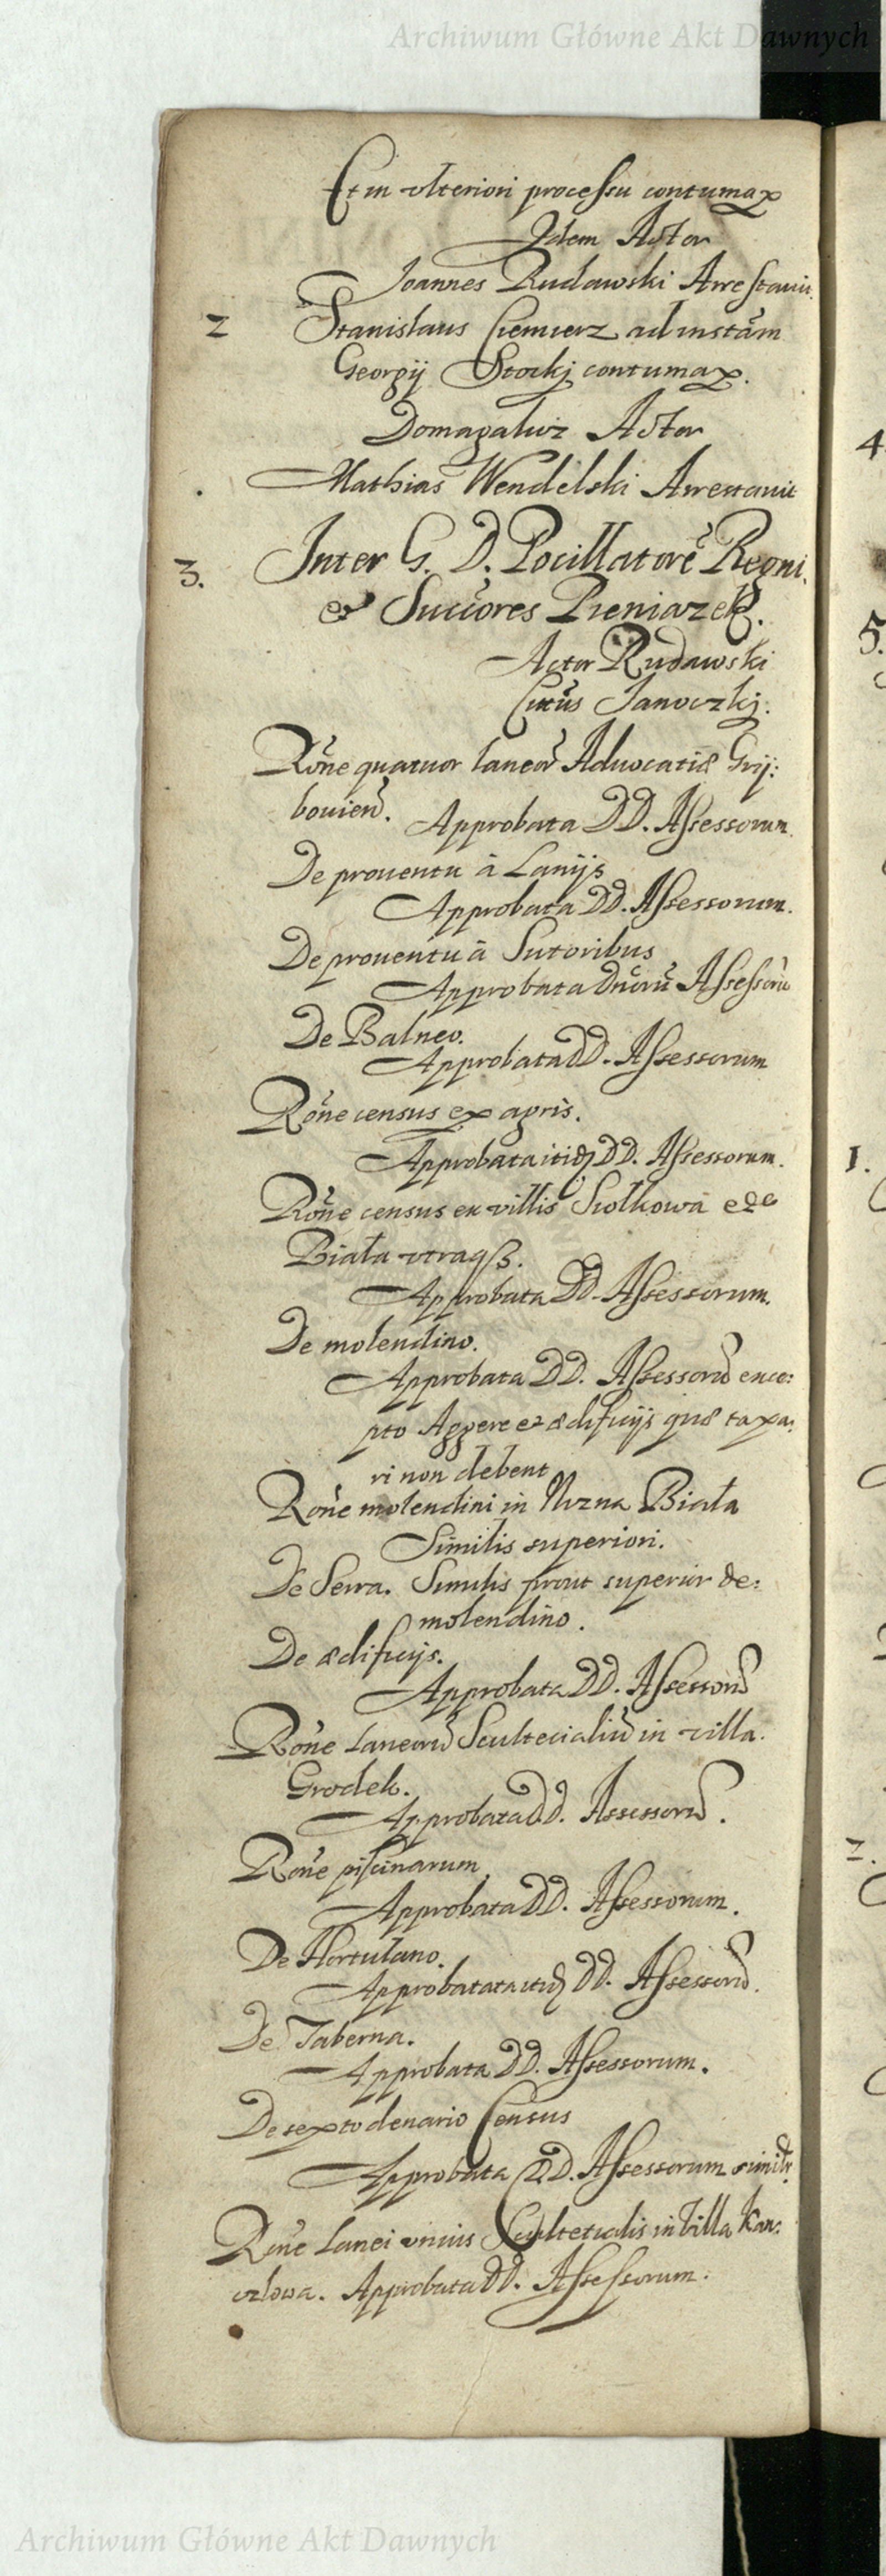 Archiwum Główne Akt Dawnych
Et in vlteriori processu contumax
Idem Actor
Joannes Rudawski Arrestauit
2 Stanislaus Ciemierz ad instām
Georgij Stockj contumax.
Domagalicz Actor
Mathias Wendelski Arrestauit
3. Inter G. D. Pocillatorē Regni
et Succōres Pieniazek.
Actor Rudawski
Citūs Janoczkj.
Rōne quatuor laneor̄ Aduocatiæ Grij:
bouien̄. Approbata DD. Assessorum
De prouentu à Lanijs
Approbata DD. Assessorum.
De prouentu à Sutoribus
Approbata Dnōrū Assessorū
De Balneo.
Approbata DD. Assessorum
Rōne census ex agris.
Approbata itidē DD. Assessorum.
Rōne census ex villis Siolkowa et
Biała vtraqȝ.
Approbata DD. Assessorum.
De molendino.
Approbata DD. Assessorū exce:
pto Aggere et ædificijs quæ taxa:
ri non debent
Rōne molendini in Nizna Biała
Similis superiori.
De Serra. Similis prout superior de:
molendino.
De ædificijs.
Approbata DD. Assessorū
Rōne laneorū Scultecialiū in villa
Grodek.
Approbata DD. Assessorū.
Rōne piscinarum
Approbata DD. Assessorum.
De Hortulano.
Approbatata itidē DD. Assessorū.
De Taberna.
Approbata DD. Assessorum.
De sexto denario Census
Approbata DD. Assessorum similr̄
Rōne lanei vnius Scultetialis in Villa Kan:
czlowa. Approbata DD. Assessorum.
4.
5.
1.
2.
Archiwum Główne Akt Dawnych